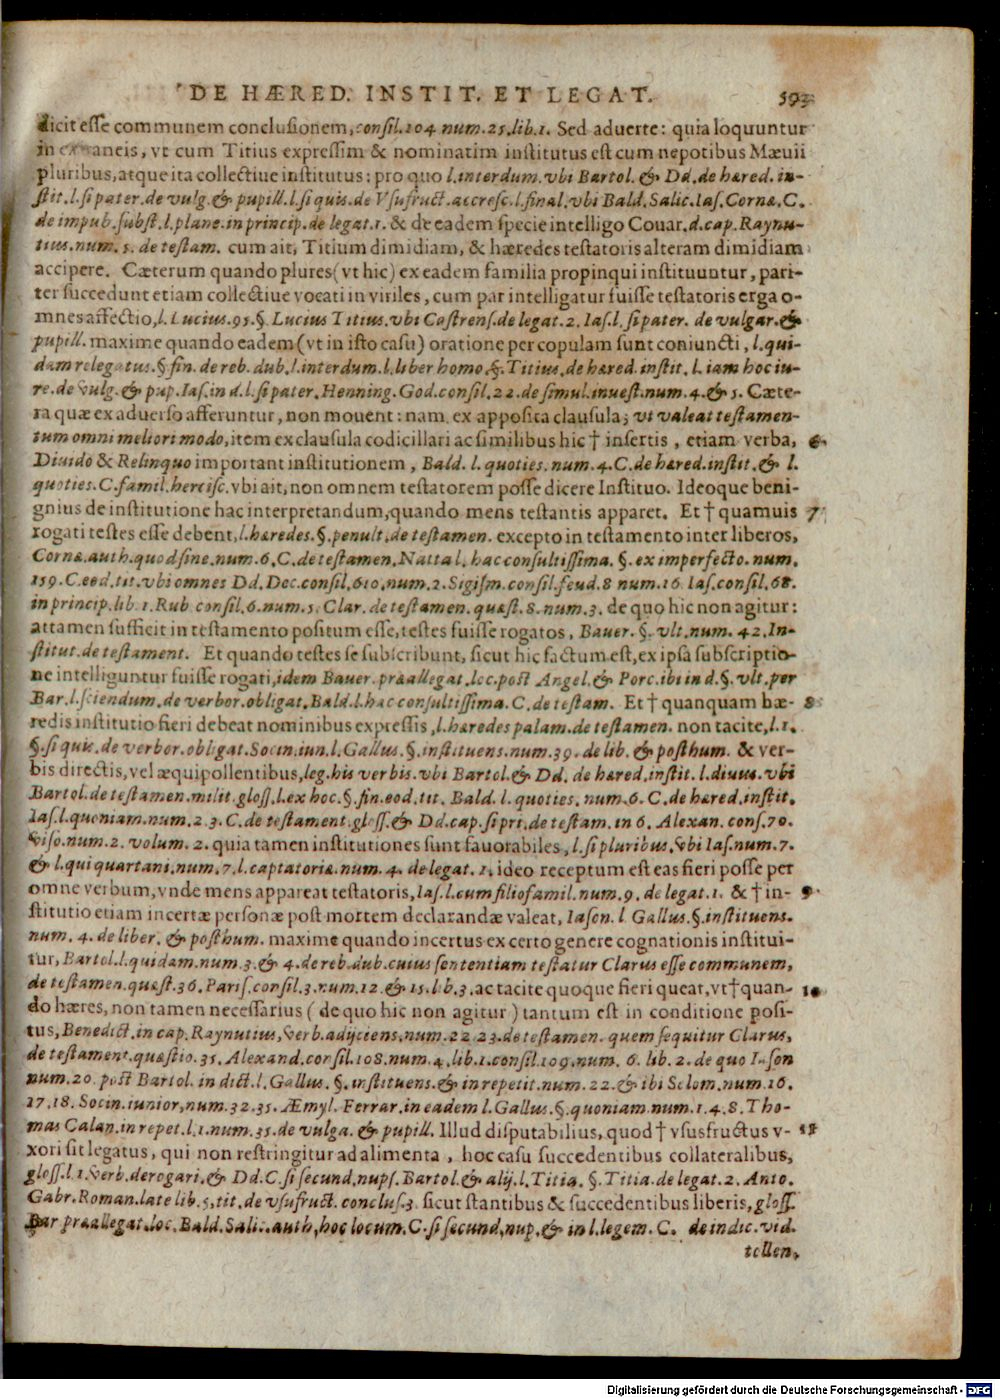 DE HÆRED. INSTIT. ET LEGAT. 593
dicit esse communem conclusionem, consil. 104 num. 25. lib. 1. Sed aduerte: quia loquuntur
in extraneis, vt cum Titius expressim & nominatim institutus est cum nepotibus Mæuii
pluribus, atque ita collectiue institutus: pro quo l. interdum. vbi Bartol. & Dd. de hæred. in-
stit. l. si pater. de vulg. & pupill. l. si quis. de Vsufruct. accresc. l. final. vbi Bald. Salic. Ias. Cornæ. C.
de impub. subst. l. plane. in princip. de legat. 1. & de eadem specie intelligo Couar. d. cap. Raynu-
tius. num. 5. de testam. cum ait, Titium dimidiam, & hæredes testatoris alteram dimidiam
accipere. Cæterum quando plures (vt hic) ex eadem familia propinqui instituuntur, pari-
ter succedunt etiam collectiue vocati in viriles, cum par intelligatur fuisse testatoris erga o-
mnes affectio, l. Lucius. 95. §. Lucius Titius. vbi Castrens. de legat. 2. Ias. l. si pater. de vulgar. &
pupill. maxime quando eadem (vt in isto casu) oratione per copulam sunt coniuncti, l. qui-
dam relegatus. § fin. de reb. dub. l. interdum. l. liber homo §. Titius. de hæred. instit. l. iam hoc iu-
re. de vulg. & pup. Ias. in d. l. si pater. Henning. God. consil. 22. de simul. inuest. num. 4. & 5. Cæte-
ra quæ ex aduerso afferuntur, non mouent: nam ex apposita clausula; vt valeat testamen-
tum omni meliori modo, item ex clausula codicillari ac similibus hic † insertis, etiam verba, 6
Diuido & Relinquo important institutionem, Bald. l. quoties. num. 4. C. de hæred. instit. & l.
quoties. C. famil. hercisc. vbi ait, non omnem testatorem posse dicere Instituo. Ideoque beni-
gnius de institutione hac interpretandum, quando mens testantis apparet. Et † quamuis 7
rogati testes esse debent, l. hæredes. §. penult. de testamen. excepto in testamento inter liberos,
Cornæ. auth. quod sine. num. 6. C. de testamen. Natta l. hac consultissima. §. ex imperfecto. num.
159. C. eod. tit. vbi omnes Dd. Dec. consil. 610. num. 2. Sigism. consil. feud. 8 num. 16 Ias. consil. 68.
in princip. lib. 1. Rub consil. 6. num. 5. Clar. de testamen. quæst. 8. num. 3. de quo hic non agitur:
attamen sufficit in testamento positum esse, testes fuisse rogatos, Bauer. §. vlt. num. 42. In-
stitut. de testament. Et quando testes se subscribunt, sicut hic factum est, ex ipsa subscriptio-
ne intelliguntur fuisse rogati, idem Bauer. præallegat. loc. post Angel. & Porc. ibi in d. §. vlt. per
Bar. l. sciendum. de verbor. obligat. Bald. l. hac consultissima. C. de testam. Et † quanquam hæ- 8
redis institutio fieri debeat nominibus expressis, l. hæredes palam. de testamen. non tacite, l. 1.
§. si quis. de verbor. obligat. Socin. iun. l. Gallus. §. instituens. num. 39. de lib. & posthum. & ver-
bis directis, vel æquipollentibus, leg. his verbis. vbi Bartol. & Dd. de hæred. instit. l. diuus. vbi
Bartol. de testamen. milit. gloss. l. ex hoc. §. fin. eod. tit. Bald. l. quoties. num. 6. C. de hæred. instit.
Ias. l. quoniam. num. 2. 3. C. de testament. gloss. & Dd. cap. si pri. de testam. in 6. Alexan. cons. 70.
viso. num. 2. volum. 2. quia tamen institutiones sunt fauorabiles, l. si pluribus. vbi Ias. num. 7.
& l. qui quartam. num. 7. l. captatoriæ. num. 4. de legat. 1. ideo receptum est eas fieri posse per
omne verbum, vnde mens appareat testatoris, Ias. l. cum filiofamil. num. 9. de legat. 1. & † in- 9
stitutio etiam incertæ personæ post mortem declarandæ valeat, Iason. l Gallus. §. instituens.
num. 4. de liber. & posthum. maxime quando incertus ex certo genere cognationis institui-
tur, Bartol. l. quidam. num. 3. & 4. de reb. dub. cuius sententiam testatur Clarus esse communem,
de testamen. quæst. 36. Paris. consil. 3. num. 12. & 15. lib. 3. ac tacite quoque fieri queat, vt † quan- 10
do hæres, non tamen necessarius (de quo hic non agitur) tantum est in conditione posi-
tus, Benedict. in cap. Raynutius, verb. adijciens, num. 22 23. de testamen. quem sequitur Clarus,
de testament. quæstio. 35. Alexand. consil. 108. num. 4. lib. 1. consil. 109. num. 6. lib. 2. de quo Iason
num. 20. post Bartol. in dict. l. Gallus. §. instituens. & in repetit. num. 22. & ibi Salom. num. 16.
17. 18. Socin. iunior, num. 32. 35. Æmyl. Ferrar. in eadem l. Gallus. §. quoniam. num. 1. 4. 8. Tho-
mas Calan. in repet. l. 1. num. 35. de vulga. & pupill. Illud disputabilius, quod † vsusfructus v- 11
xori sit legatus, qui non restringitur ad alimenta, hoc casu succedentibus collateralibus,
gloss. l. 1. verb. derogari. & Dd. C. si secund. nups. Bartol. & alij. l. Titia. §. Titia. de legat. 2. Anto.
Gabr. Roman. late lib. 5. tit. de vsufruct. conclus. 3. sicut stantibus & succedentibus liberis, gloss.
Bar præallegat. loc. Bald. Salic. auth. hoc locum. C. si secund. nup. & in l. legem. C. de indic. vid.
tollen.
Digitalisierung gefördert durch die Deutsche Forschungsgemeinschaft - DFG